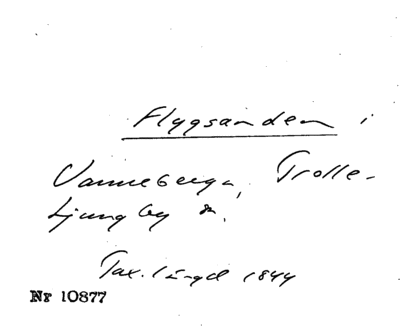 Flygsanden i
Vanneberga, Trolle-
Ljungby s.
Tax. längd 1844
Nr 10877